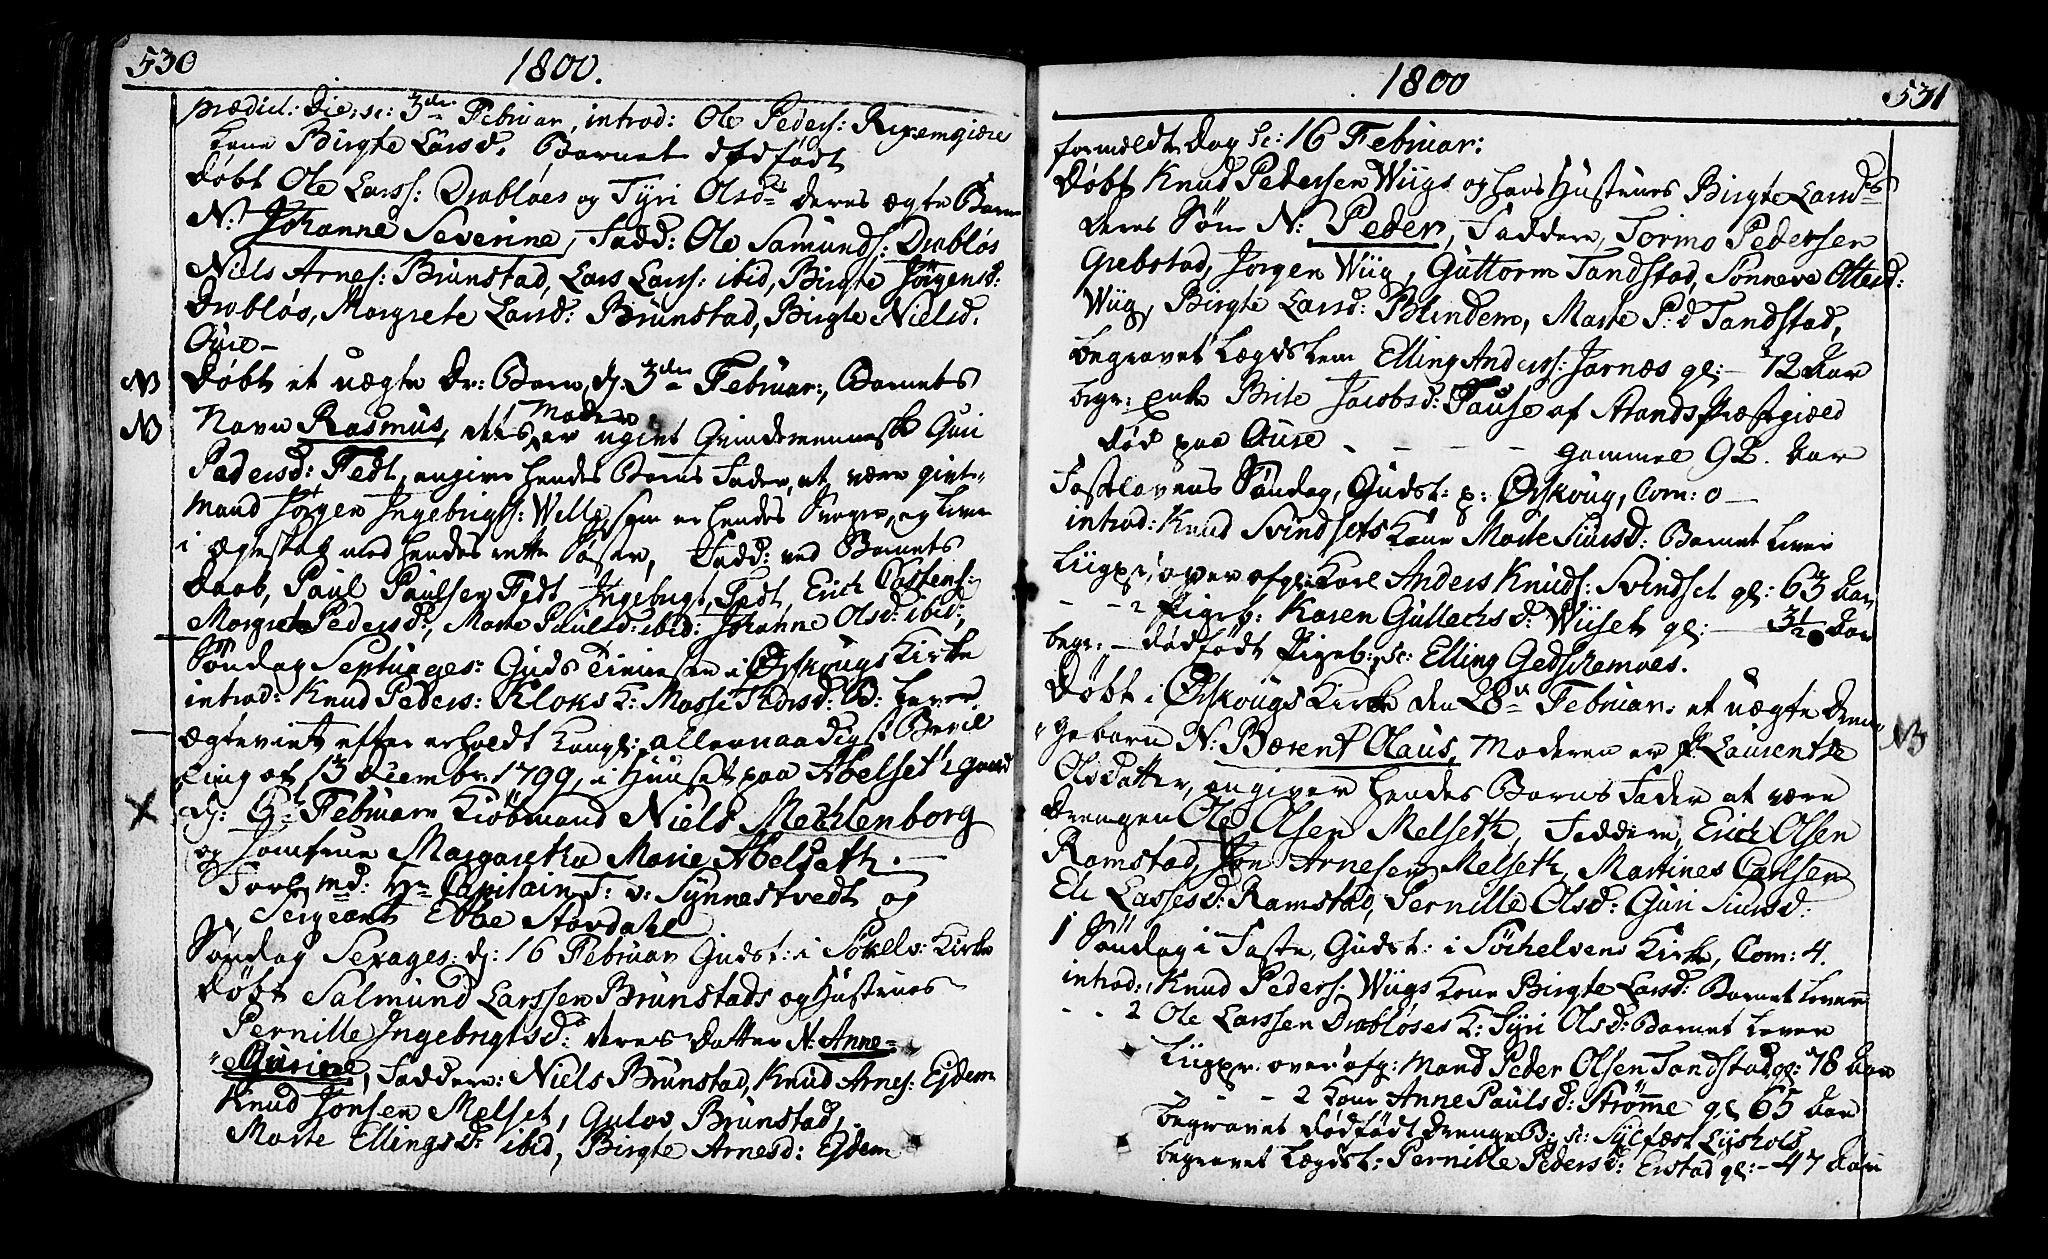 530
1800.
prædict: Die: sc: 3die Februar, introd: Ole Peders: Rexemgiære
Kone Birgte Larsd. Barnet dødfødt
Døbt Ole Larss: Drabløes og Tyri Olsd: deres ægte Barn
N: Johanne Severine, Fadd: Ole Samunds: Drabløs
Niels Arnes: Brunstad, Lars Larss: ibid, Birgte Jørgensd:
Drabløs, Margrete Larsd: Brunstad, Birgte Nielsd.
Oure-
NB Døbt et uægte Dr: Barn, d: 3die Februar:, Barnets
NB Navn Rasmus, dets Moder er ugivt Qvindemenniske Guri
Pedersd: Fedt, angiver hendes Barns Fader, at være givte
Mand Jørgen Ingebrigts: Welle, som er hendes Svoger, og lever
i Ægteskab med hendes rette Søster, Fadd: ved Barnets
Daab, Paul Paulsen Fedt, Ingebrigt Fedt, Erich
Margrete Pedersd:, Marte Paulsd: ibid: Johanne Olsd: ibid:
Søndag Septuages: Guds Tienesten i Ørskougs Kirke
introd: Knud Peders: Kloks K: Massi B: lever
Ægteviet efter erholdt Kongl: allernaadigst Bevil
ling af 13 Decembr: 1799, i Huuset paa Abelset gaard
d: Februar Kiöbmand Niels Mechlenborg
og Jomfrue Margaretha Marie Abelseth.
Forl: md: Hr Capitain T: v: Synnestvedt og
Sergeant Ebbe Stordahl
Søndag Sexages: d: 16 Februar Gudst: i Søkelv: Kirke
Døbt Salmund Larssen Brunstads og Hustrues
Pernille Ingebrigtsd: deres Datter N: Anne-
Guriene, Faddere: Niels Brunstad, Knud Arnes: Ejdem
Knud Jonsen Melset, Gulov Brunstad,
Marte Ellingsd: ibid, Birgte Arnesd: Ejdem
1800
531
formeldte Dag sc: 16 Februar:
Døbt Knud Pedersen Wiigs og hans Hustrues Birgte Larsd:
deres Søn N: Peder, Faddere, Tormo Pedersen
Grebstad, Jørgen Wiig, Guttorm Tandstad, Sonneve Ottesd:
Wiig, Birgte Larsd: Blindem, Marte P:d Tandstad,
begravet Lægdslem Elling Anderss: Jarnæs gl:- 72 Aar
begr: Enke Brite Jacobsd: Pause af Strands Præstegield
død paa Oure - - - - gammel 92. Aar
Fastelavens Søndag, Gudst: p: Ørskoug, Com: 0-
introd: Knud Svindsets Kone Marte Siursd: Barnet lever
Liigpr: over afg: Karl Anders Knuds: Svindset gl: 63 Aar
- - 2 Pigeb: Karen Gullachsd: Wiiset gl: - 3½ Aar
begr: - dødfødt Pigeb: sc: Elling Gedschremoes.
Døbt i Ørskougs Kirke den 28de Februar: et uægte Dren
gebarn N: Bærent Olaus, Moderen er P: Laurentse NB
Olsdatter, angiver hendes Barns Fader at være
drengen Ole Olsen Melseth, Faddere, Erich Olsen
Ramstad, Jon Arnesen Melseth, Martines Carlsen
Eli Lassesd: Ramstad, Pernille Olsd: Guri Siursd:
1 Søndag i Faste, Gudst: i Söchelvens Kirke, Com: 4.
introd: Knud Peders: Wiigs Kone Birgte Larsd: Barnet lever
- - 2 Ole Larssen Drabløses K: Tyri Olsd: Barnet lever
Liigpr: over afg: Mand Peder Olsen Tandstad gl: 78 Aar
- - 2 Kone Anne Paulsd: Strømme gl 65 Aar
begravet dødfødt drenge B: sc: Sylfæst Lyshols
begravet Lægdsl: Pernille Pedersd: Erstad gl:- 47 Aar